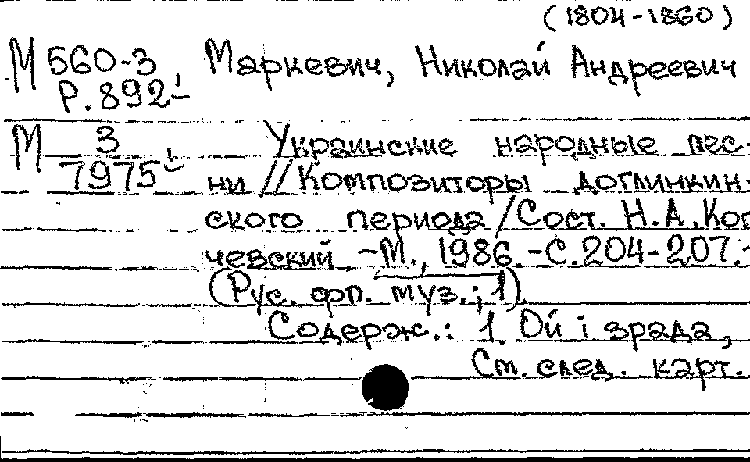 (1804-1860)
М 560-3 Маркевич, Николай Андреевич
Р.892-1
М 3 Украинские народные пес-
7975-1 ни // Композиторы доглинкин-
ского периода / Сост. Н.А. Кос
чевский -М., 1986.-С.204-207.-
(Рус. фп. муз.; 1).
Содерж.: 1. Ой і зрада,
См. след. карт.